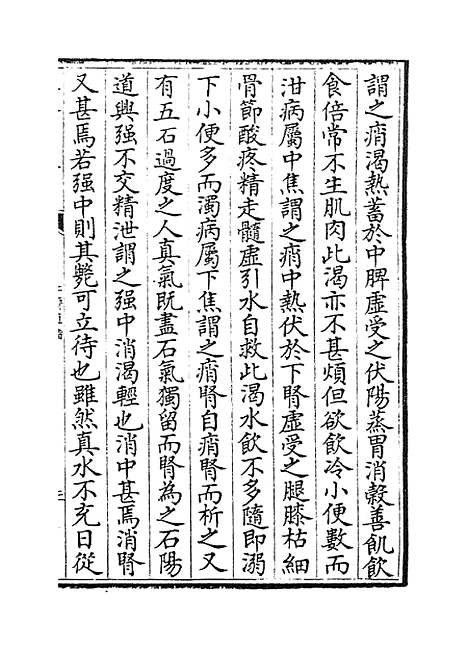 謂之痟渴熱蓄於中脾虛受之伏陽蒸胃消穀善飢飲
食倍常不生肌肉此渴亦不甚煩但欲飲冷小便數而
泔病屬中焦謂之痟中熱伏於下腎虛受之腿膝枯細
骨節酸疼精走髓虛引水自救此渴水飲不多隨即溺
下小便多而濁病屬下焦謂之痟腎自痟腎而析之又
有五石過度之人真氣既盡石氣獨留而腎為之石陽
道興强不交精泄謂之强中消渴輕也消中甚焉消腎
又甚焉若强中則其斃可立待也雖然真水不充日從